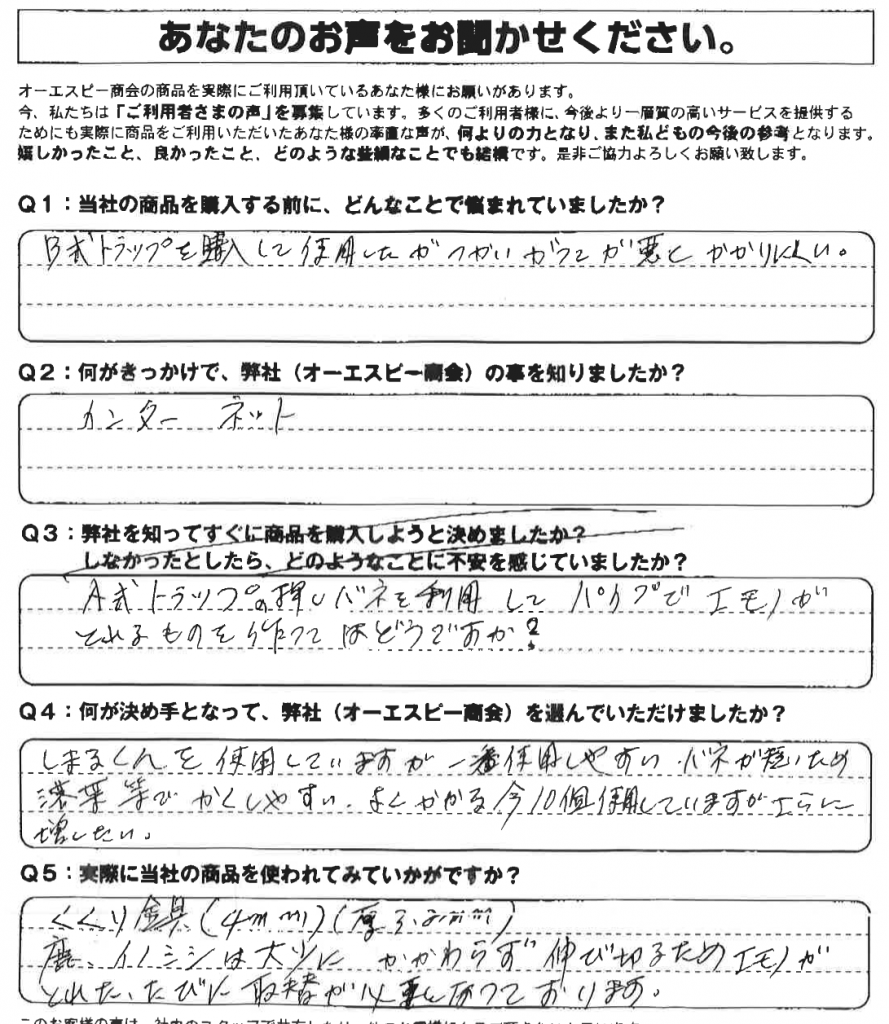 あなたのお声をお聞かせください。
オーエスピー商会の商品を実際にご利用頂いているあなた様にお願いがあります。
今、私たちは「ご利用者さまの声」を募集しています。多くのご利用者様に、今後より一層質の高いサービスを提供する
ためにも実際に商品をご利用いただいたあなた様の率直な声が、何よりの力となり、また私どもの今後の参考となります。
嬉しかったこと、良かったこと、どのような些細なことでも結構です。是非ご協力よろしくお願い致します。
Q1：当社の商品を購入する前に、どんなことで悩まれていましたか？
B式トラップを購入して使用したがつかいがつてが悪くかかりにくい。
Q2：何がきっかけで、弊社（オーエスピー商会）の事を知りましたか？
インターネット
Q3：弊社を知ってすぐに商品を購入しようと決めましたか？
しなかったとしたら、どのようなことに不安を感じていましたか？
A式トラップの押しバネを利用してパイプでエモノが
とれるものを作つてはどうですか？
Q4：何が決め手となって、弊社（オーエスピー商会）を選んでいただけましたか？
しまるくんを使用していますが一番使用しやすい、バネが短いため
落葉等でかくしやすい、よくかかる今10個使用していますがエらに
増したい。
Q5：実際に当社の商品を使われてみていかがですか？
くくり金具（4mm）（厚さ
鹿、イノシシは大小にかかわらず伸び切るためエモノが
とれた、たびに取替が
なつております。